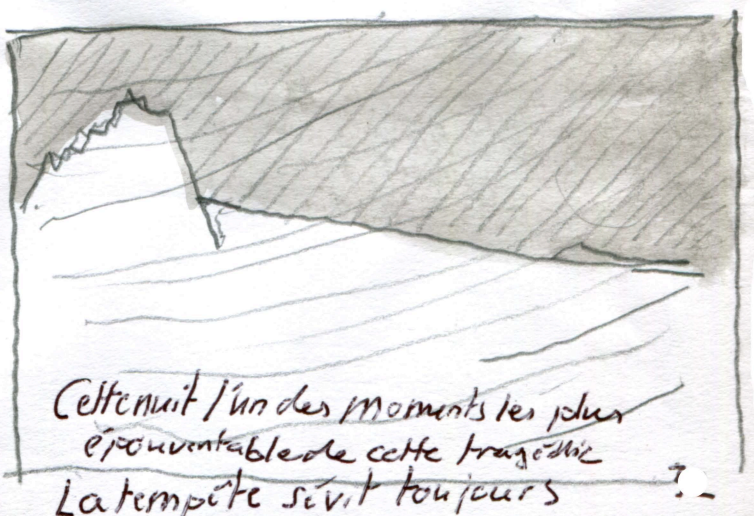 Cette nuit l'un des moments les plus
épouventable de cette tragédie
La tempête sévit toujours